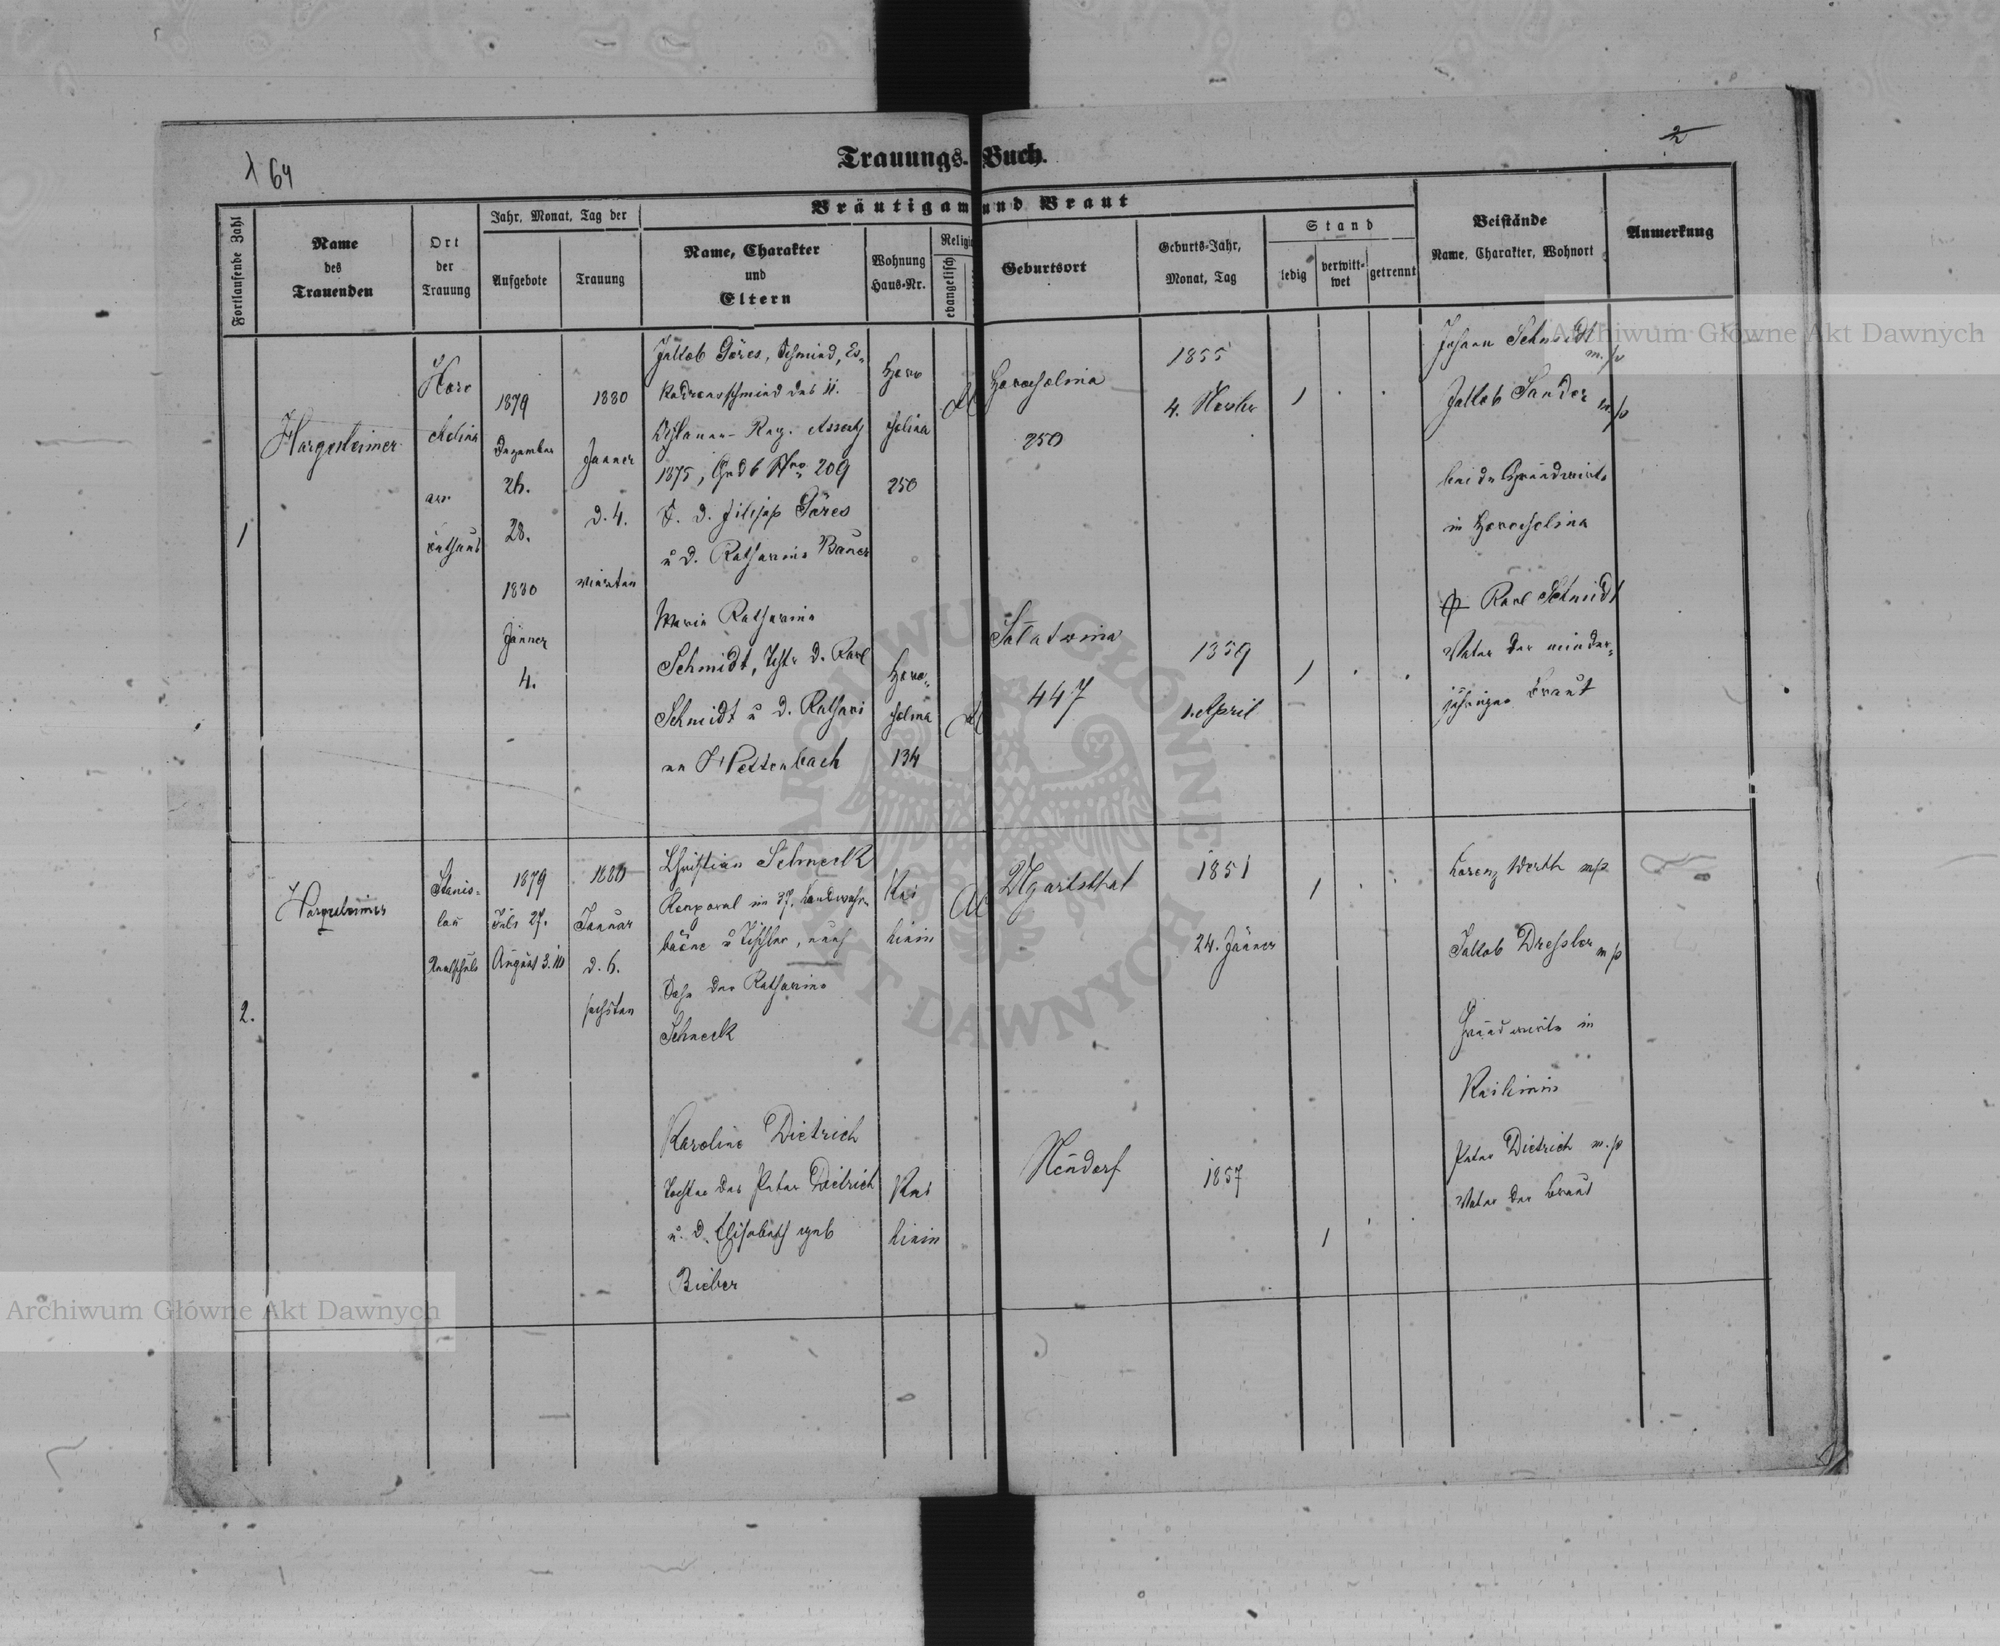 64
2
Trauungs-Buch.
Fortlaufende Zahl
Name
des
Trauenden
Ort
der
Trauung
Jahr, Monat, Tag der
Aufgebote
Trauung
Bräutigam und Braut
Name, Charakter
und
Eltern
Wohnung
Haus-Nr.
Religi
evangelisch
Geburtsort
Geburts-Jahr,
Monat, Tag
Stand
ledig
verwitt-
wet
getrennt
Beistände
Name, Charakter, Wohnort
Anmerkung
1
Hargesheimer
Horo
cholina
im
1879
Dezember
26.
28.
1880
Jänner
4.
1880
Jänner
d. 4.
vierten
Jakob Göres, Schmied, Es-
kadronsschmied des
1875, Grdb Nro 209
S. d. Filipp Göres
u d. Katharina Bauer
Horo
cholina
250
Horocholina
250
1855
1
Johann Schmidt
m.p
Jakob Sander m/p
beide Grundwirte
in Horocholina
Maria Katharina
Schmidt, Tcht. d. Karl
Schmidt u d. Kathari
na Wettenbach
Horo-
cholina
134
Sołatwina
447
1859
1. April
1
Karl Schmidt
Vater der minder-
jährigen Braut
2.
Hargesheimer
Stanis-
lau
1879
Juli 27.
August 3. 10
1880
Januar
d. 6.
sechsten
Christian Schneck
Korporal im 37. Landwehr-
Sohn der Katharina
Schneck
Ugartsthal
1851
24. Jänner
1
Lorenz Werth m/p
Jakob Dressler m/p
Grundwirte in
Karoline Dietrich
Tochter des Peter Dietrich
u. d. Elisabeth geb
Bieber
Neudorf
1857
1
Peter Dietrich m.p
Vater der Braut
Archiwum Główne Akt Dawnych
Archiwum Główne Akt Dawnych
ARCHIWUM GŁÓWNE AKT DAWNYCH